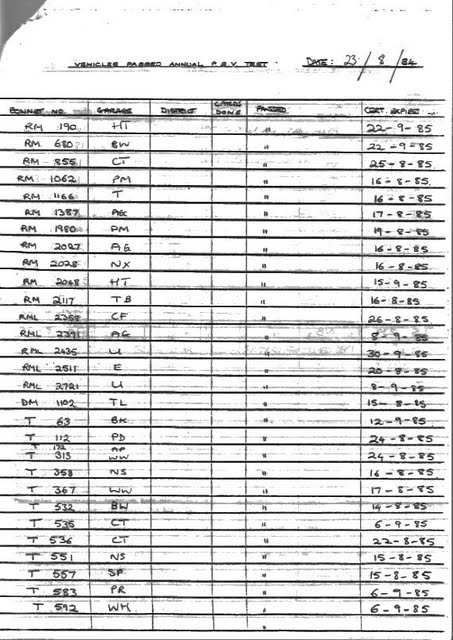 VEHICLES PASSED ANNUAL P.S.V. TEST. DATE: 23/8/84
BONNET NO. GARAGE DISTRICT CARDS DONE PASSED CERT. EXPIRES
RM 190 HT " 22-9-85
RM 680 BW " 22-9-85
RM 855 CT " 25-8-85
RM 1062 PM " 16-8-85
RM 1166 T " 16-8-85
RM 1387 AG " 17-8-85
RM 1980 PM " 19-8-85
RM 2027 AG " 16-8-85
RM 2028 NX " 16-8-85
RM 2048 HT " 15-9-85
RM 2117 TB " 16-8-85
RML 2358 CF " 26-8-85
RML 2391 AG " 8-9-85
RML 2435 U " 30-9-85
RML 2511 E " 20-8-85
RML 2721 U " 8-9-85
DM 1102 TL " 15-8-85
T 63 BK " 12-9-85
T 112 PD " 24-8-85
T 172 AP
T 313 WW " 24-8-85
T 353 NS " 16-8-85
T 367 WW " 17-8-85
T 532 BW " 14-8-85
T 535 CT " 6-9-85
T 536 CT " 22-8-85
T 551 NS " 15-8-85
T 557 SP " 15-8-85
T 583 PR " 6-9-85
T 592 WH " 6-9-85
"